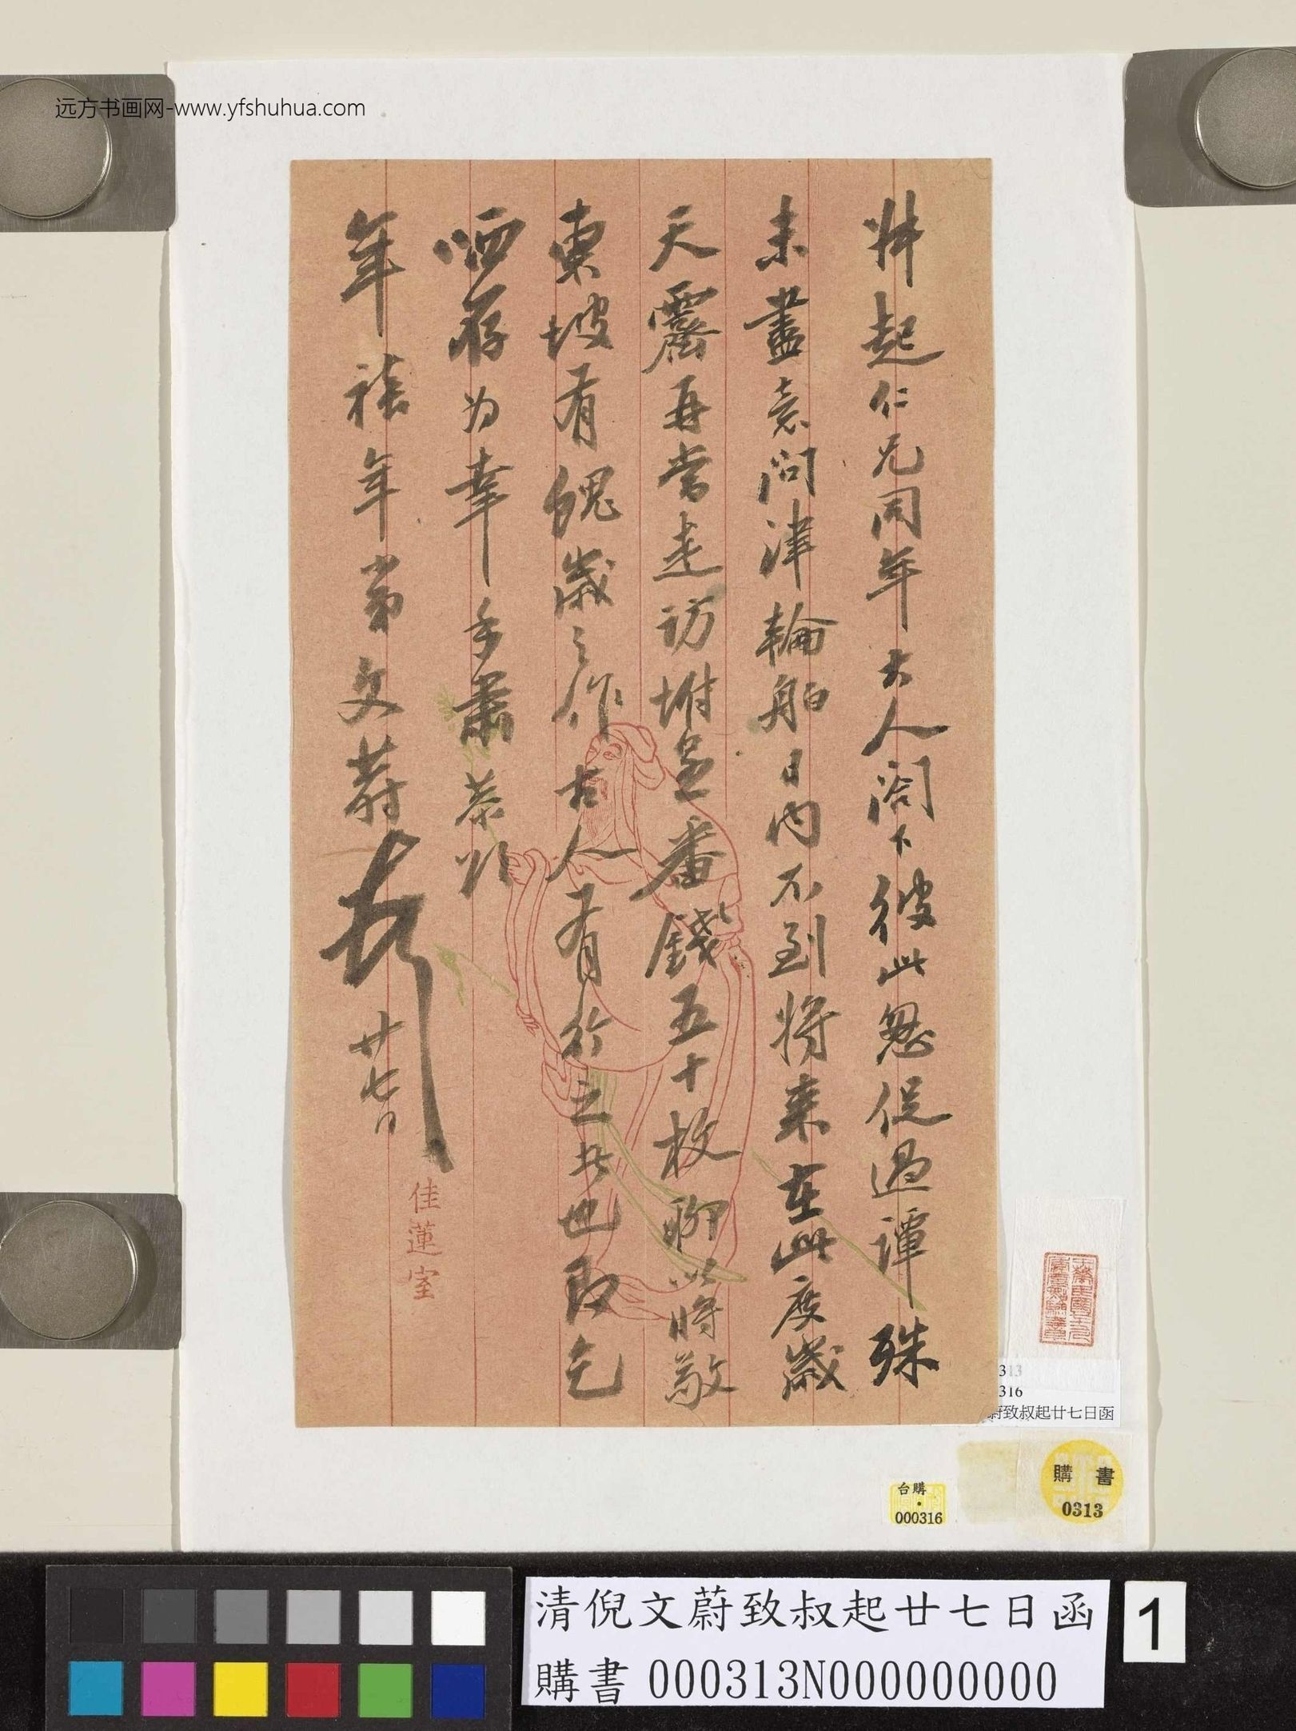 远方书画网-www.yfshuhua.com
叔起仁兄同年大人阁下彼此怱促過譚殊
未盡意問津輪船日内不到將來在此度歲
天霽再當走訪坿呈番錢五十枚聊以將敬
東坡有餽歲之作古人有行之者也即乞
哂存为幸手肅恭叩
年禧年弟文蔚頓
廿七日
佳蓮室
313
316
蔚致叔起廿七日函
購書
0313
台購
000316
清倪文蔚致叔起廿七日函
購書 000313N000000000
1